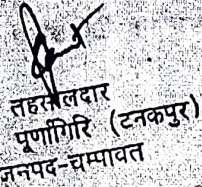 तहसीलदार
पूर्णागिरि (टनकपुर)
जनपद-चम्पावत